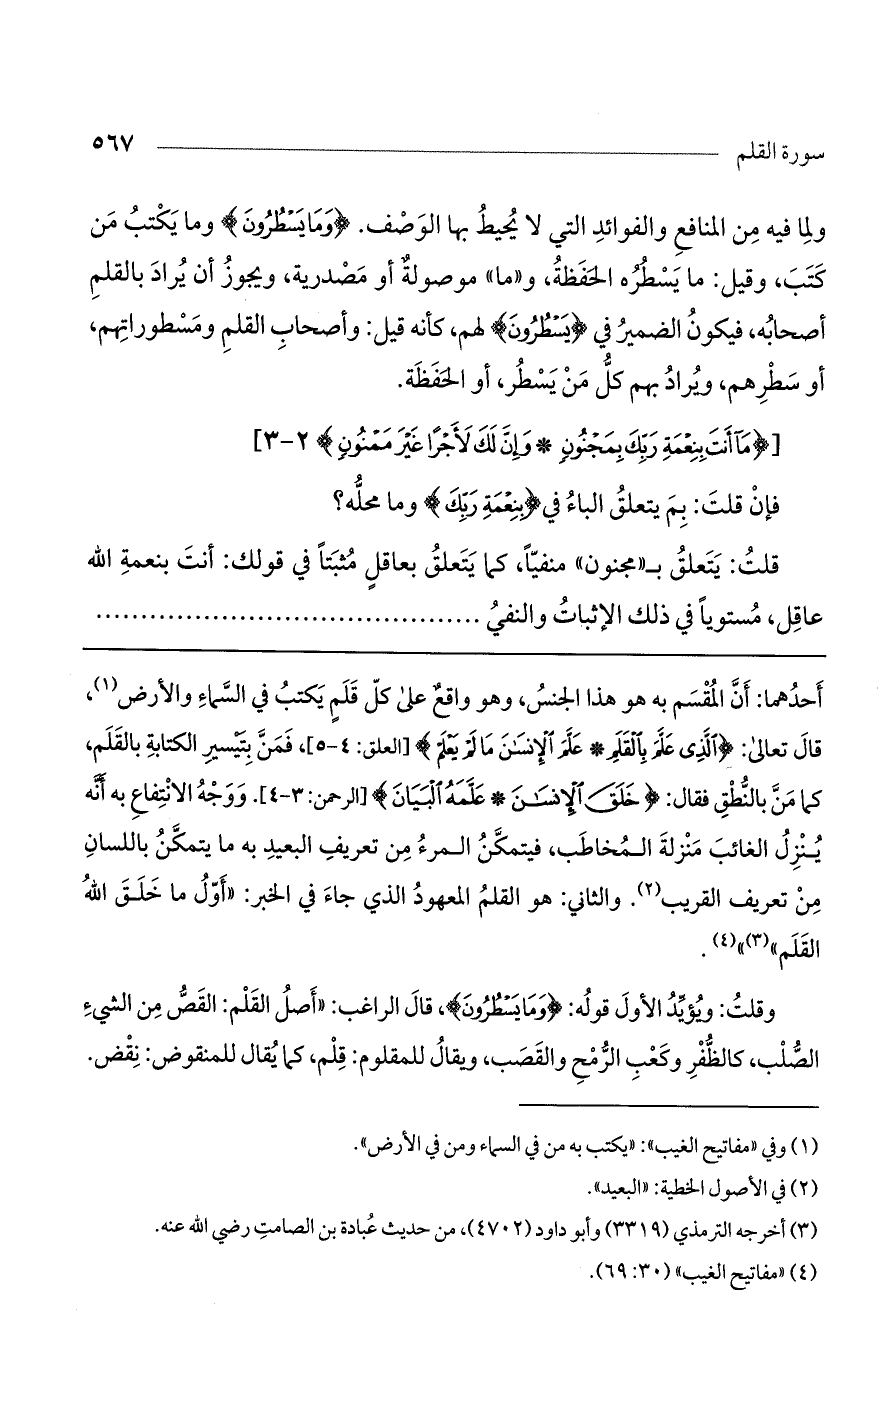 سورة القلم ٥٦٧
ولِما فيه مِن المنافعِ والفوائدِ التي لا يُحيطُ بها الوَصْف. ﴿وَمَا يَسْطُرُونَ﴾ وما يَكْتبُ مَن
كَتَبَ، وقيل: ما يَسْطُرُه الحَفَظةُ، و«ما» موصولةٌ أو مَصْدرية، ويجوزُ أن يُرادَ بالقلمِ
أصحابُه، فيكونُ الضميرُ في ﴿يَسْطُرُونَ﴾ لهم، كأنه قيل: وأصحابِ القلمِ ومَسْطوراتِهم،
أو سَطْرِهم، ويُرادُ بهم كلُّ مَنْ يَسْطُر، أو الحَفَظَة.
[﴿مَآ أَنتَ بِنِعْمَةِ رَبِّكَ بِمَجْنُونٍ * وَإِنَّ لَكَ لَأَجْرًا غَيْرَ مَمْنُونٍ﴾ ٢-٣]
فإنْ قلتَ: بِمَ يتعلقُ الباءُ في ﴿بِنِعْمَةِ رَبِّكَ﴾ وما محلُّه؟
قلتُ: يَتَعلقُ بـ«مجنون» منفيّاً، كما يَتَعلقُ بعاقلٍ مُثبَتاً في قولك: أنتَ بنعمةِ الله
عاقِل، مُستوياً في ذلك الإثباتُ والنفيُ ........................................
أَحدُهما: أنَّ المُقْسَم به هو هذا الجنسُ، وهو واقعٌ علىٰ كلّ قَلَمٍ يَكتبُ في السَّماءِ والأرض(١)،
قالَ تعالىٰ: ﴿ٱلَّذِى عَلَّمَ بِٱلْقَلَمِ * عَلَّمَ ٱلْإِنسَٰنَ مَا لَمْ يَعْلَمْ﴾ [العلق: ٤-٥]، فَمَنَّ بِتَيْسيرِ الكتابةِ بالقَلَم،
كما مَنَّ بالنُّطْقِ فقال: ﴿خَلَقَ ٱلْإِنسَٰنَ * عَلَّمَهُ ٱلْبَيَانَ﴾ [الرحمن: ٣-٤]. وَوَجْهُ الانْتِفاعِ به أنَّه
يُـنْزِلُ الغائبَ مَنْزلةَ الـمُخاطَب، فيتمكَّنُ الـمرءُ مِن تعريفِ البعيدِ به ما يتمكَّنُ باللسانِ
مِنْ تعريف القريب(٢). والثاني: هو القلمُ المعهودُ الذي جاءَ في الخبر: «أَوّلُ ما خَلَـقَ اللهُ
القَلَم»(٣)»(٤).
وقلتُ: ويُؤيِّدُ الأولَ قولُه: ﴿وَمَا يَسْطُرُونَ﴾، قالَ الراغب: «أَصلُ القَلْم: القَصُّ مِن الشيءِ
الصُّلْب، كالظُّفْرِ وكَعْبِ الرُّمْحِ والقَصَب، ويقالُ للمقلوم: قِلْم، كما يُقال للمنقوض: نِقْض.
(١) وفي «مفاتيح الغيب»: «يكتب به من في السماء ومن في الأرض».
(٢) في الأصول الخطية: «البعيد».
(٣) أخرجه الترمذي (٣٣١٩) وأبو داود (٤٧٠٢)، من حديث عُبادة بن الصامتِ رضي الله عنه.
(٤) «مفاتيح الغيب» (٣٠: ٦٩).